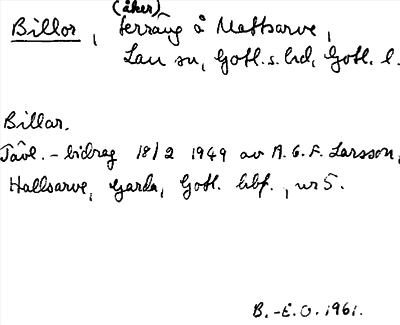 (åker)
Billor, terräng å Mattsarve,
Lau sn, Gotl. s. hd, Gotl. l.
Billar.
Tävl.-bidrag 18/2 1949 av A. G. F. Larsson,
Hallsarve, Garda, Gotl. bbf., nr 5.
B.-E.O. 1961.